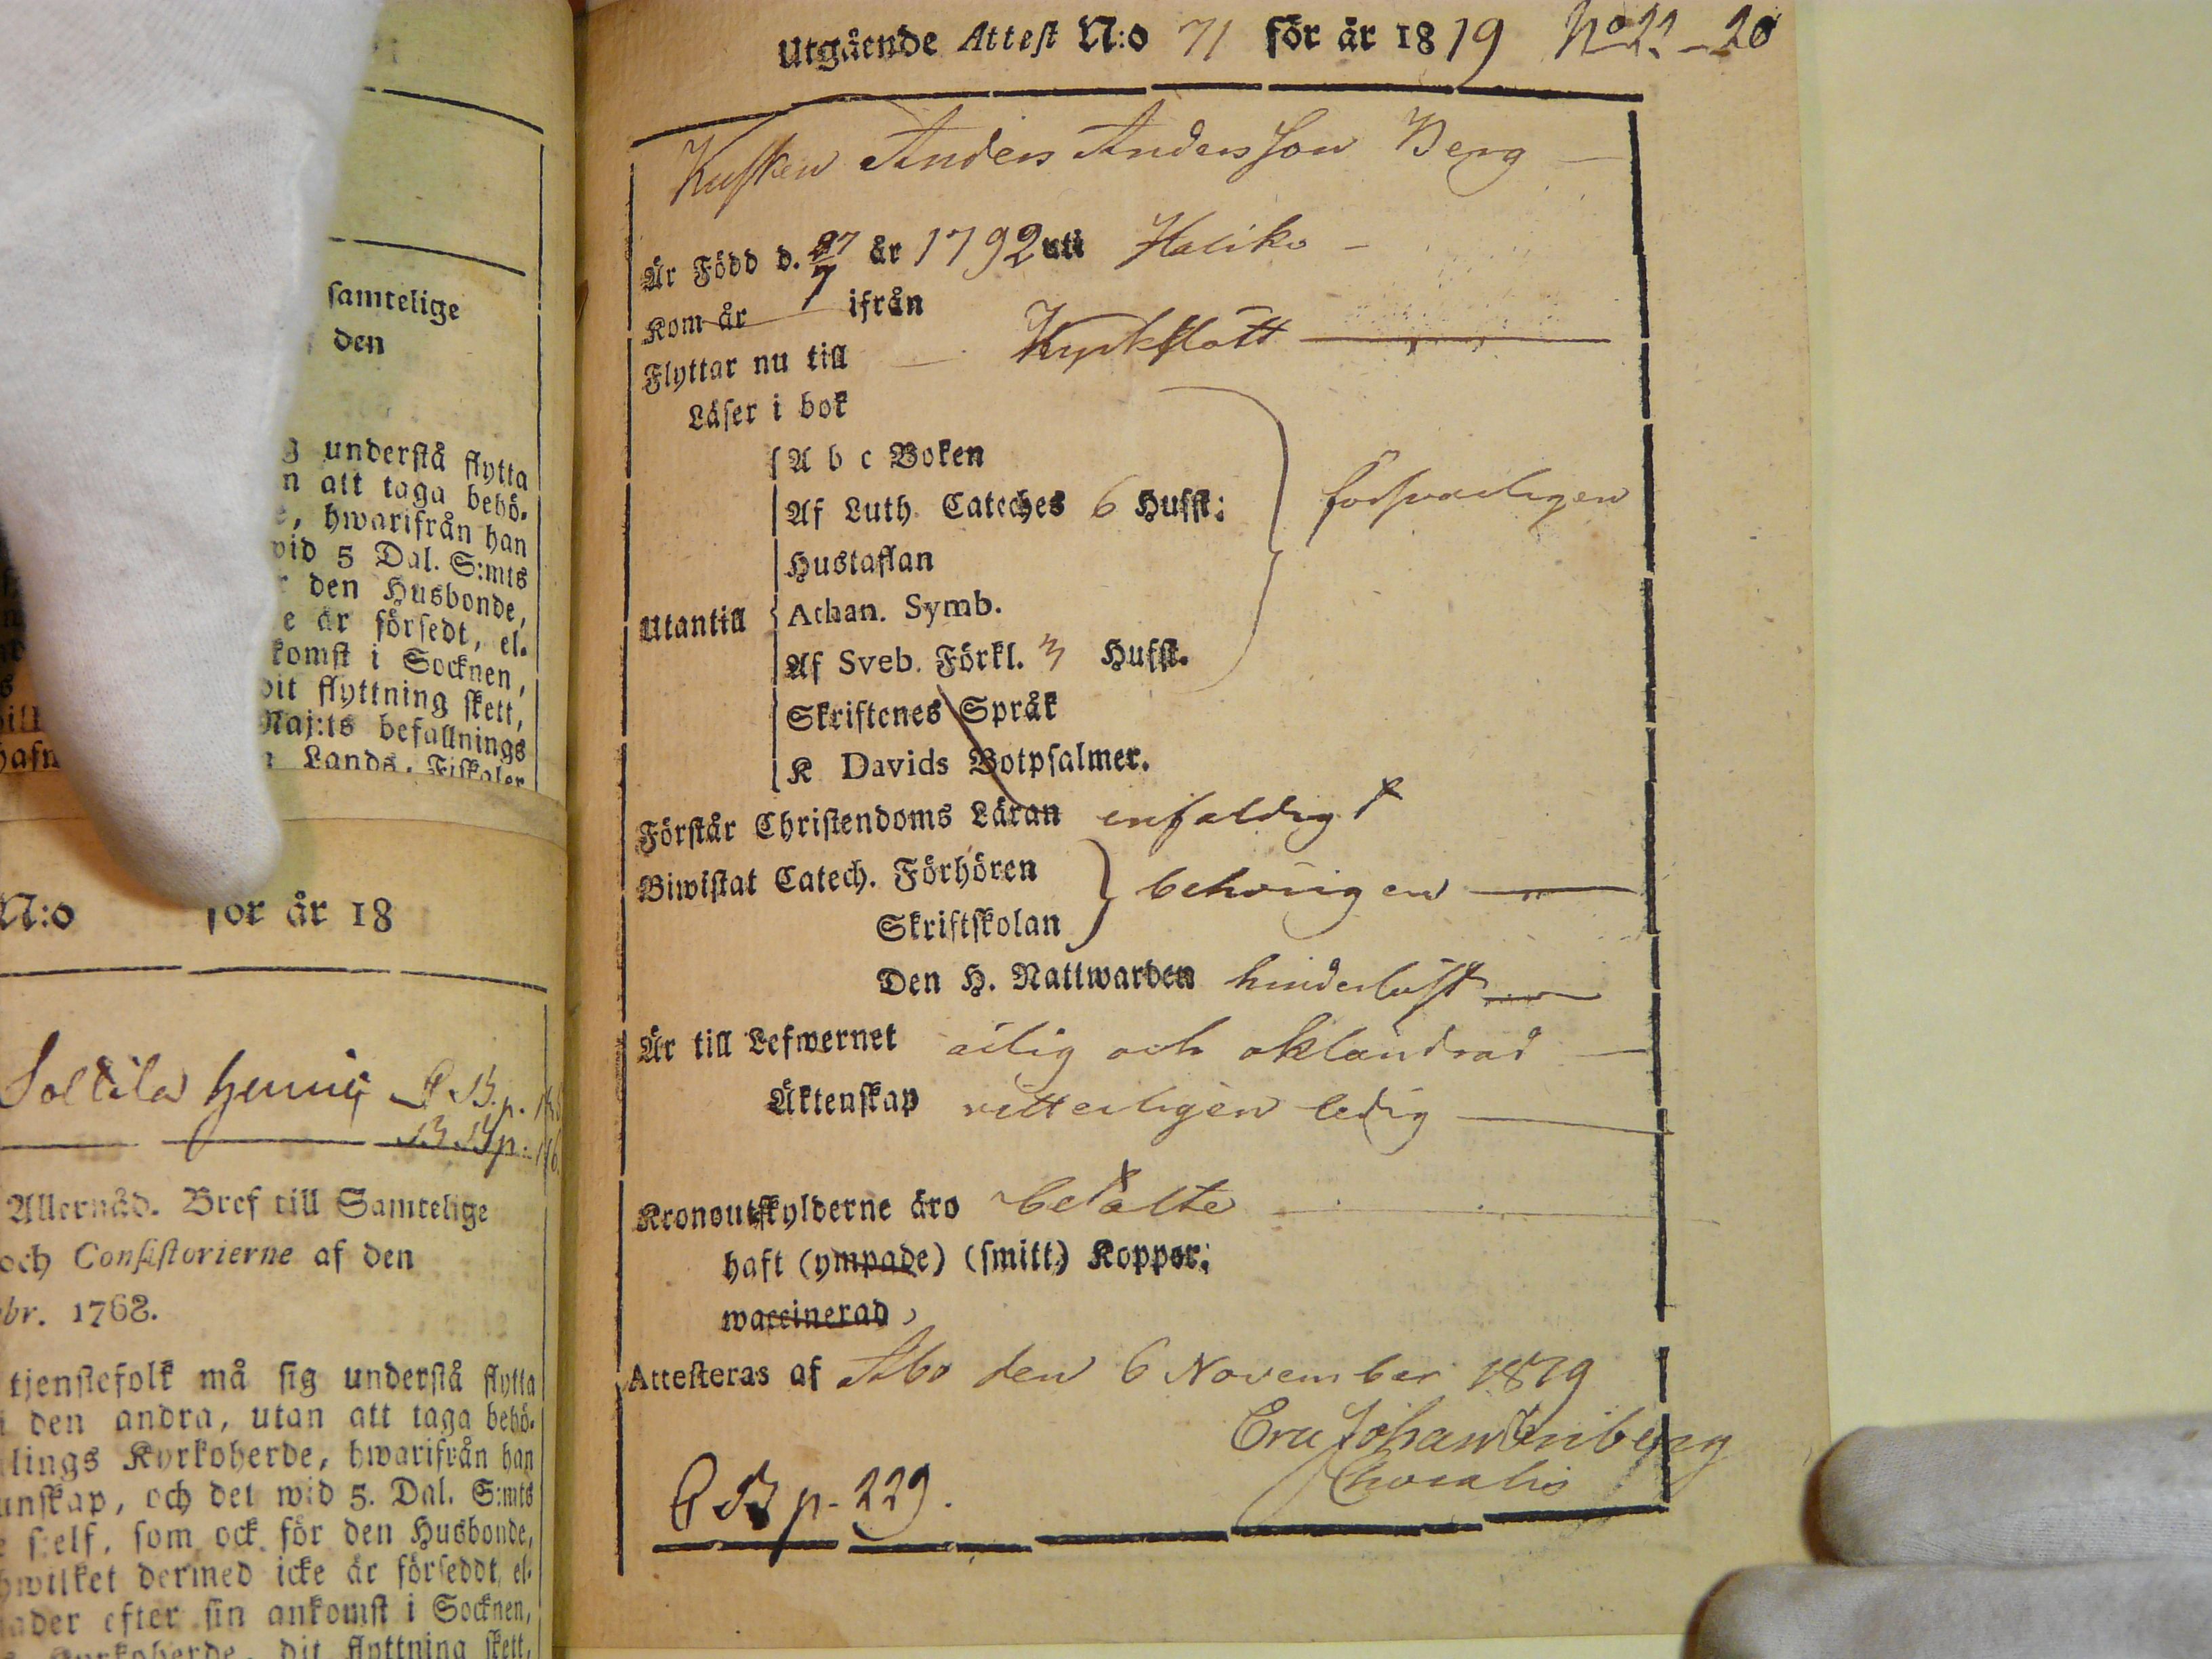 samtelige
den
understå flytta
n att taga behö-
, hwarifrån han
wid 5 Dal. S:mts
den Husbonde,
e är försedt, el-
komst i Socknen,
dit flyttning skett,
Maj:ts befallnings
Lands-Fiskaler
N:o för år 18
Allernåd. Bref till Samtelige
och Consistorierne af den
br. 1768.
tjenstefolk må sig understå flytta
den andra, utan att taga behö-
lings Kyrkoherde, hwarifrån han
unskap, och det wid 5. Dal. S:mts
sjelf, som ock för den Husbonde,
hwilket dermed icke är förseddt, el-
ader efter sin ankomst i Socknen,
Kyrkoherde, dit flyttning skett,
Utgående Attest N:o 71 för år 1819 No 22 - 20
Kusken Anders Andersson Berg
Är Född d. 27/7 år 1792 uti Haliko
Kom år ifrån
Flyttar nu till Kyrkslätt
Läser i bok
A b c Boken
Af Luth. Cateches 6 Hufst: försvarligen
Hustaflan
Utantill Athan. Symb.
Af Sveb. Förkl. 3 Hufst.
Skriftenes Språk
K Davids Botpsalmer.
Förstår Christendoms Läran enfaldigt
Biwistat Catech. Förhören behörigen
Skriftskolan
Den H. Nattwarden hinderlöst
Är till Lefwernet ärlig och oklandrad
Äktenskap vitterligen ledig
Kronoutskylderne äro betalte
haft (ympade) (smitt) Koppor,
waccinerad,
Attesteras af Åbo den 6 November 1819
Eric Johan
B p. 229.